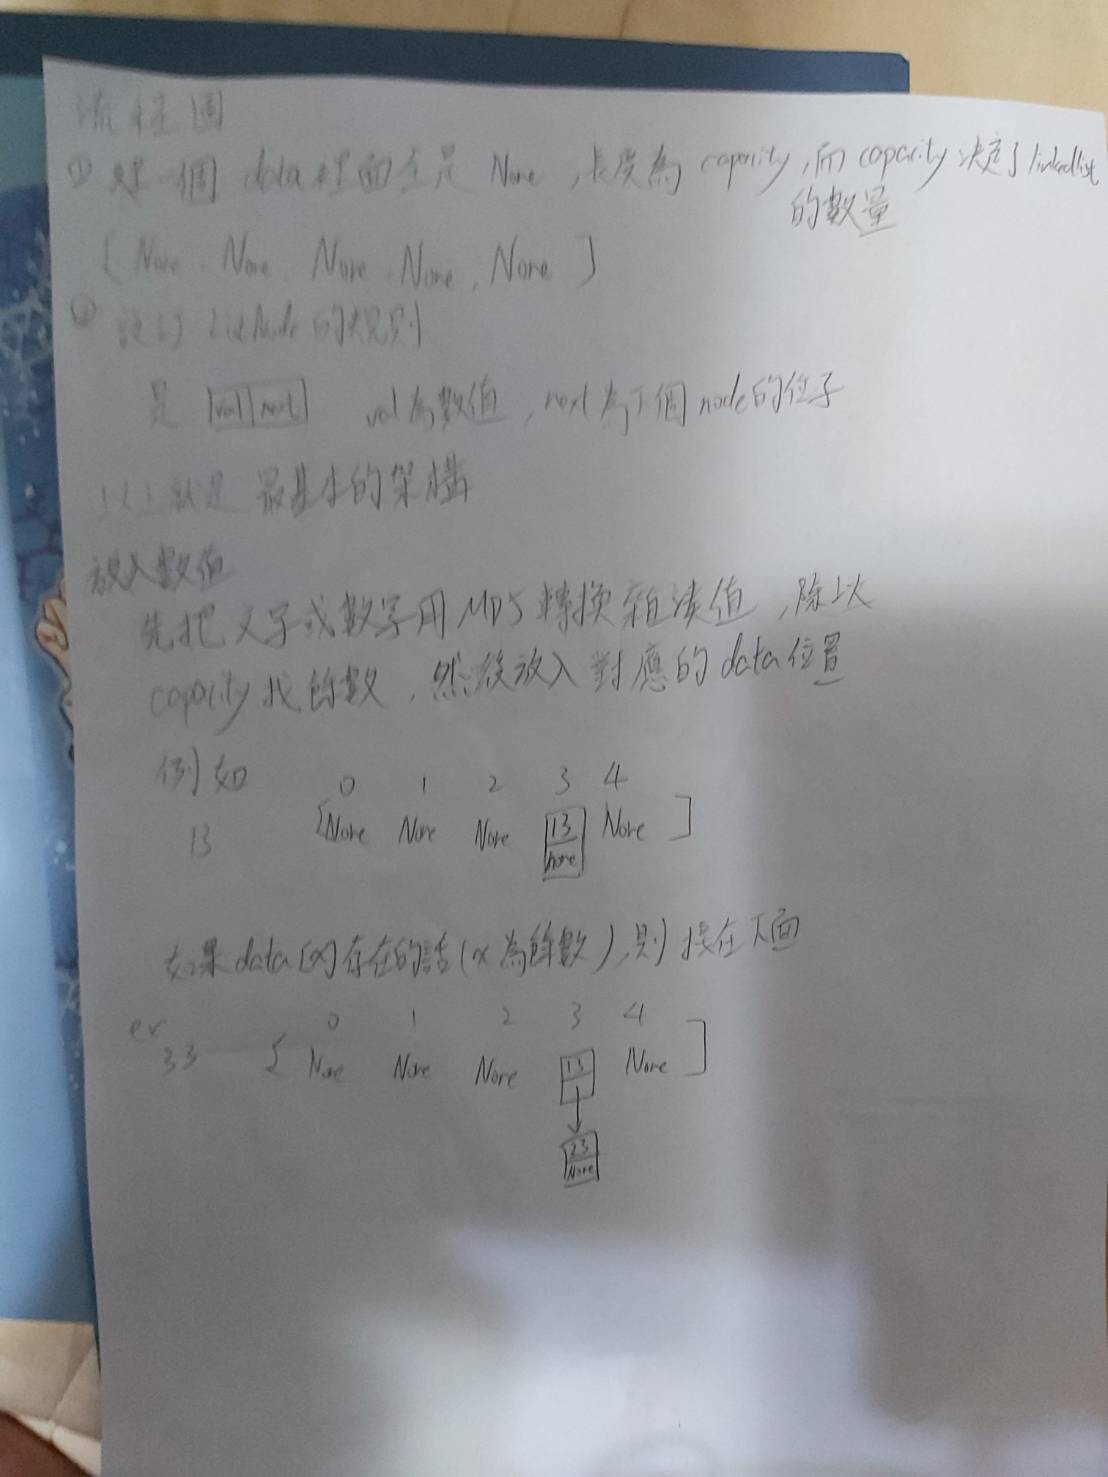 流程圖
① 建一個 data 裡面全是 None , 長度為 capacity , 而 capacity 決定了 linkedlist
的數量
[ None None None None , None ]
② 設訂 ListNode 的規則
是 val next val 為數值 , next 為下個 node 的位子
以上就是 最基本的架構
放入數值
先把文字或數字用 MD5 轉換雜湊值 , 除以
capacity 找餘數 , 然後放入對應的 data 位置
例如 0 1 2 3 4
13 [ None None None 13 None None ]
如果 data [x] 存在的話 (x 為餘數) , 則接在下面
ex 0 1 2 3 4
33 [ None None None 13 None ]
23
None